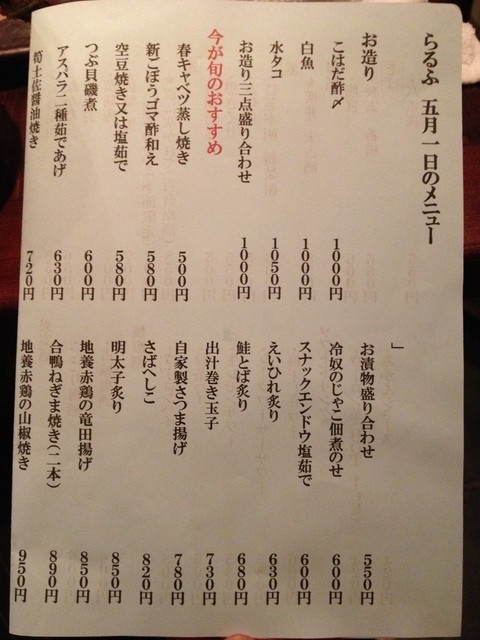 らるふ 五月一日のメニュー
お造り
こはだ酢〆 1000円
白魚 1000円
水タコ 1050円
お造り三点盛り合わせ 1000円
今が旬のおすすめ
春キャベツ蒸し焼き 500円
新ごぼうゴマ酢和え 580円
空豆焼き又は塩茹で 580円
つぶ貝磯煮 600円
アスパラ二種茹であげ 630円
筍土佐醤油焼き 720円
」
お漬物盛り合わせ 550円
冷奴のじゃこ佃煮のせ 600円
スナックエンドウ塩茹で 600円
えいひれ炙り 630円
鮭とば炙り 680円
出汁巻き玉子 730円
自家製さつま揚げ 780円
さばへしこ 820円
明太子炙り 850円
地養赤鶏の竜田揚げ 850円
合鴨ねぎま焼き(二本) 890円
地養赤鶏の山椒焼き 950円